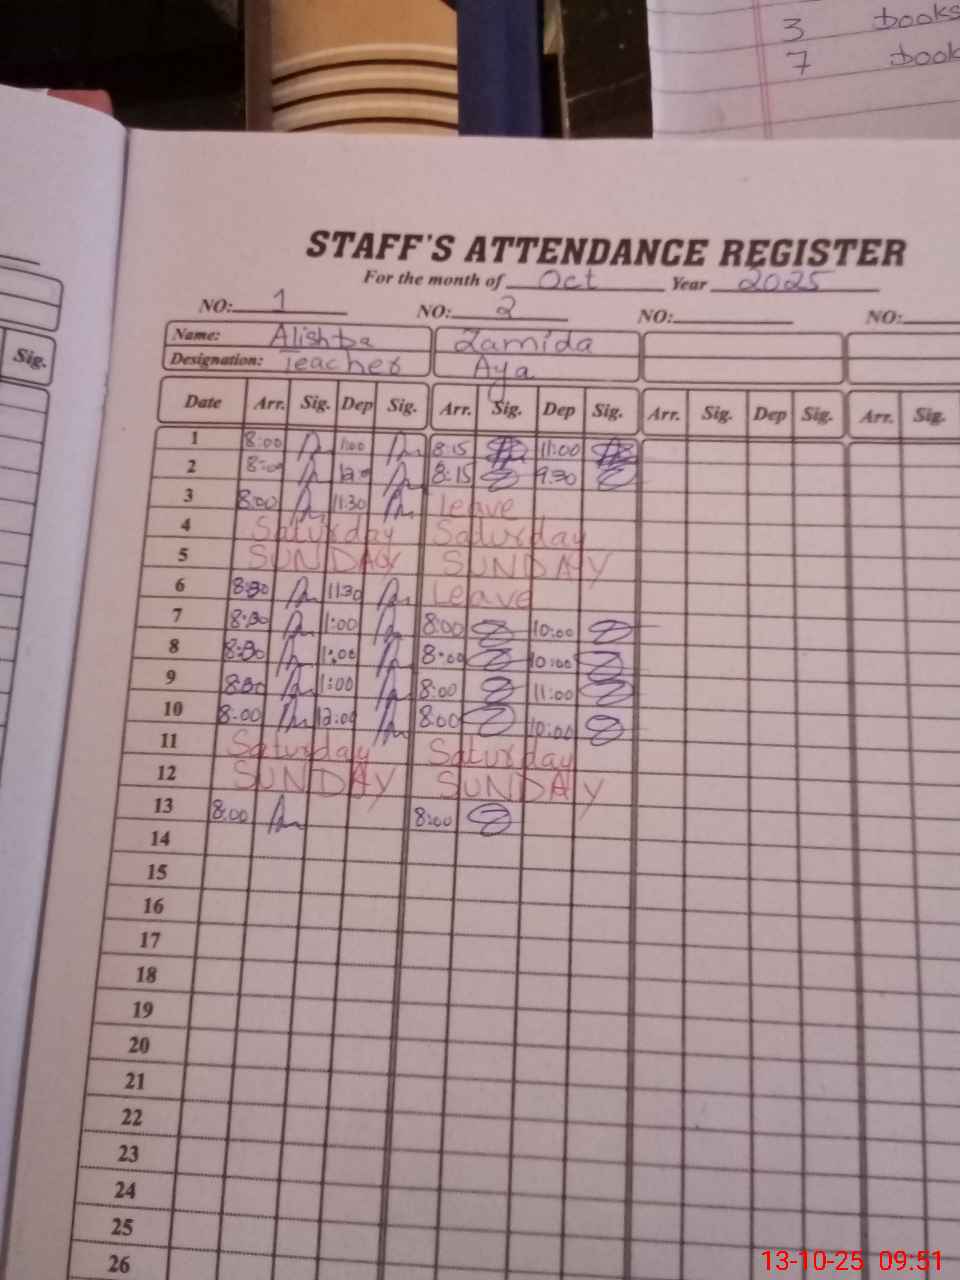 3 books
7 book
STAFF'S ATTENDANCE REGISTER
For the month of Oct Year 2025
NO: 1 NO: 2 NO: NO:
Name: Alishba Zamida
Designation: Teacher Aya
Sig.
Date Arr. Sig. Dep Sig. Arr. Sig. Dep Sig. Arr. Sig. Dep Sig. Arr. Sig.
1 8:00 1:00 8:15 11:00
2 8:00 8:15 9.30
3 8:00 11:30 Leave
4 Saturday Saturday
5 SUNDAY SUNDAY
6 8:30 11:30 Leave
7 8:30 1:00 8:00 10:00
8 8:30 1:00 8:00 10:00
9 8:30 1:00 8:00 11:00
10 8:00 12:00 8:00 10:00
11 Saturday Saturday
12 SUNDAY SUNDAY
13 8:00 8:00
14
15
16
17
18
19
20
21
22
23
24
25
26
13-10-25 09:51